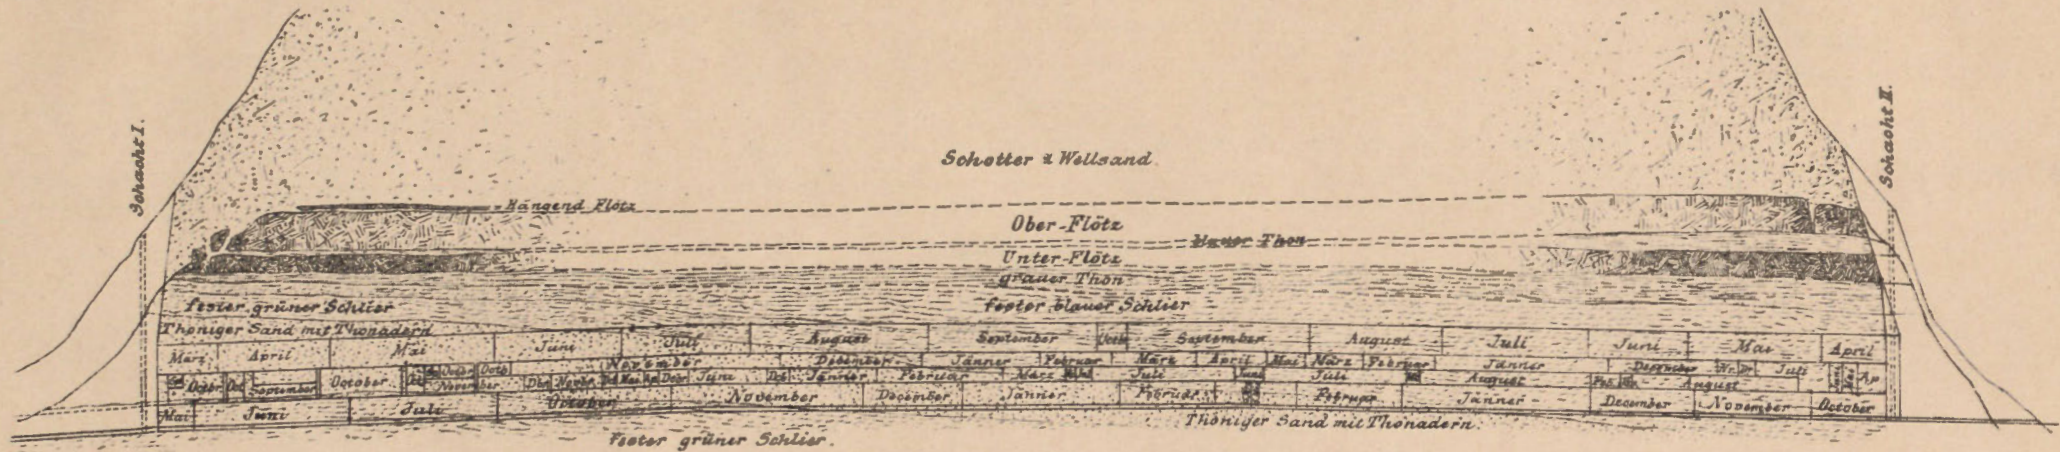 Schacht I.
Schacht II.
Schotter & Wellsand.
Hängend Flötz
Ober-Flötz
blauer Thon
Unter-Flötz
grauer Thon
fester grüner Schlier
fester blauer Schlier
Thoniger Sand mit Thonadern
März April Mai Juni Juli August September September August Juli Juni Mai April
November December Jänner Februar März April Mai März Februar Jänner December Juli
Octbr September October November Novbr Decbr Juni Jänner Februar März Juli Juli August August Ap
Mai Juni Juli October November December Jänner Februar Februar Jänner December November October
Thoniger Sand mit Thonadern.
fester grüner Schlier.